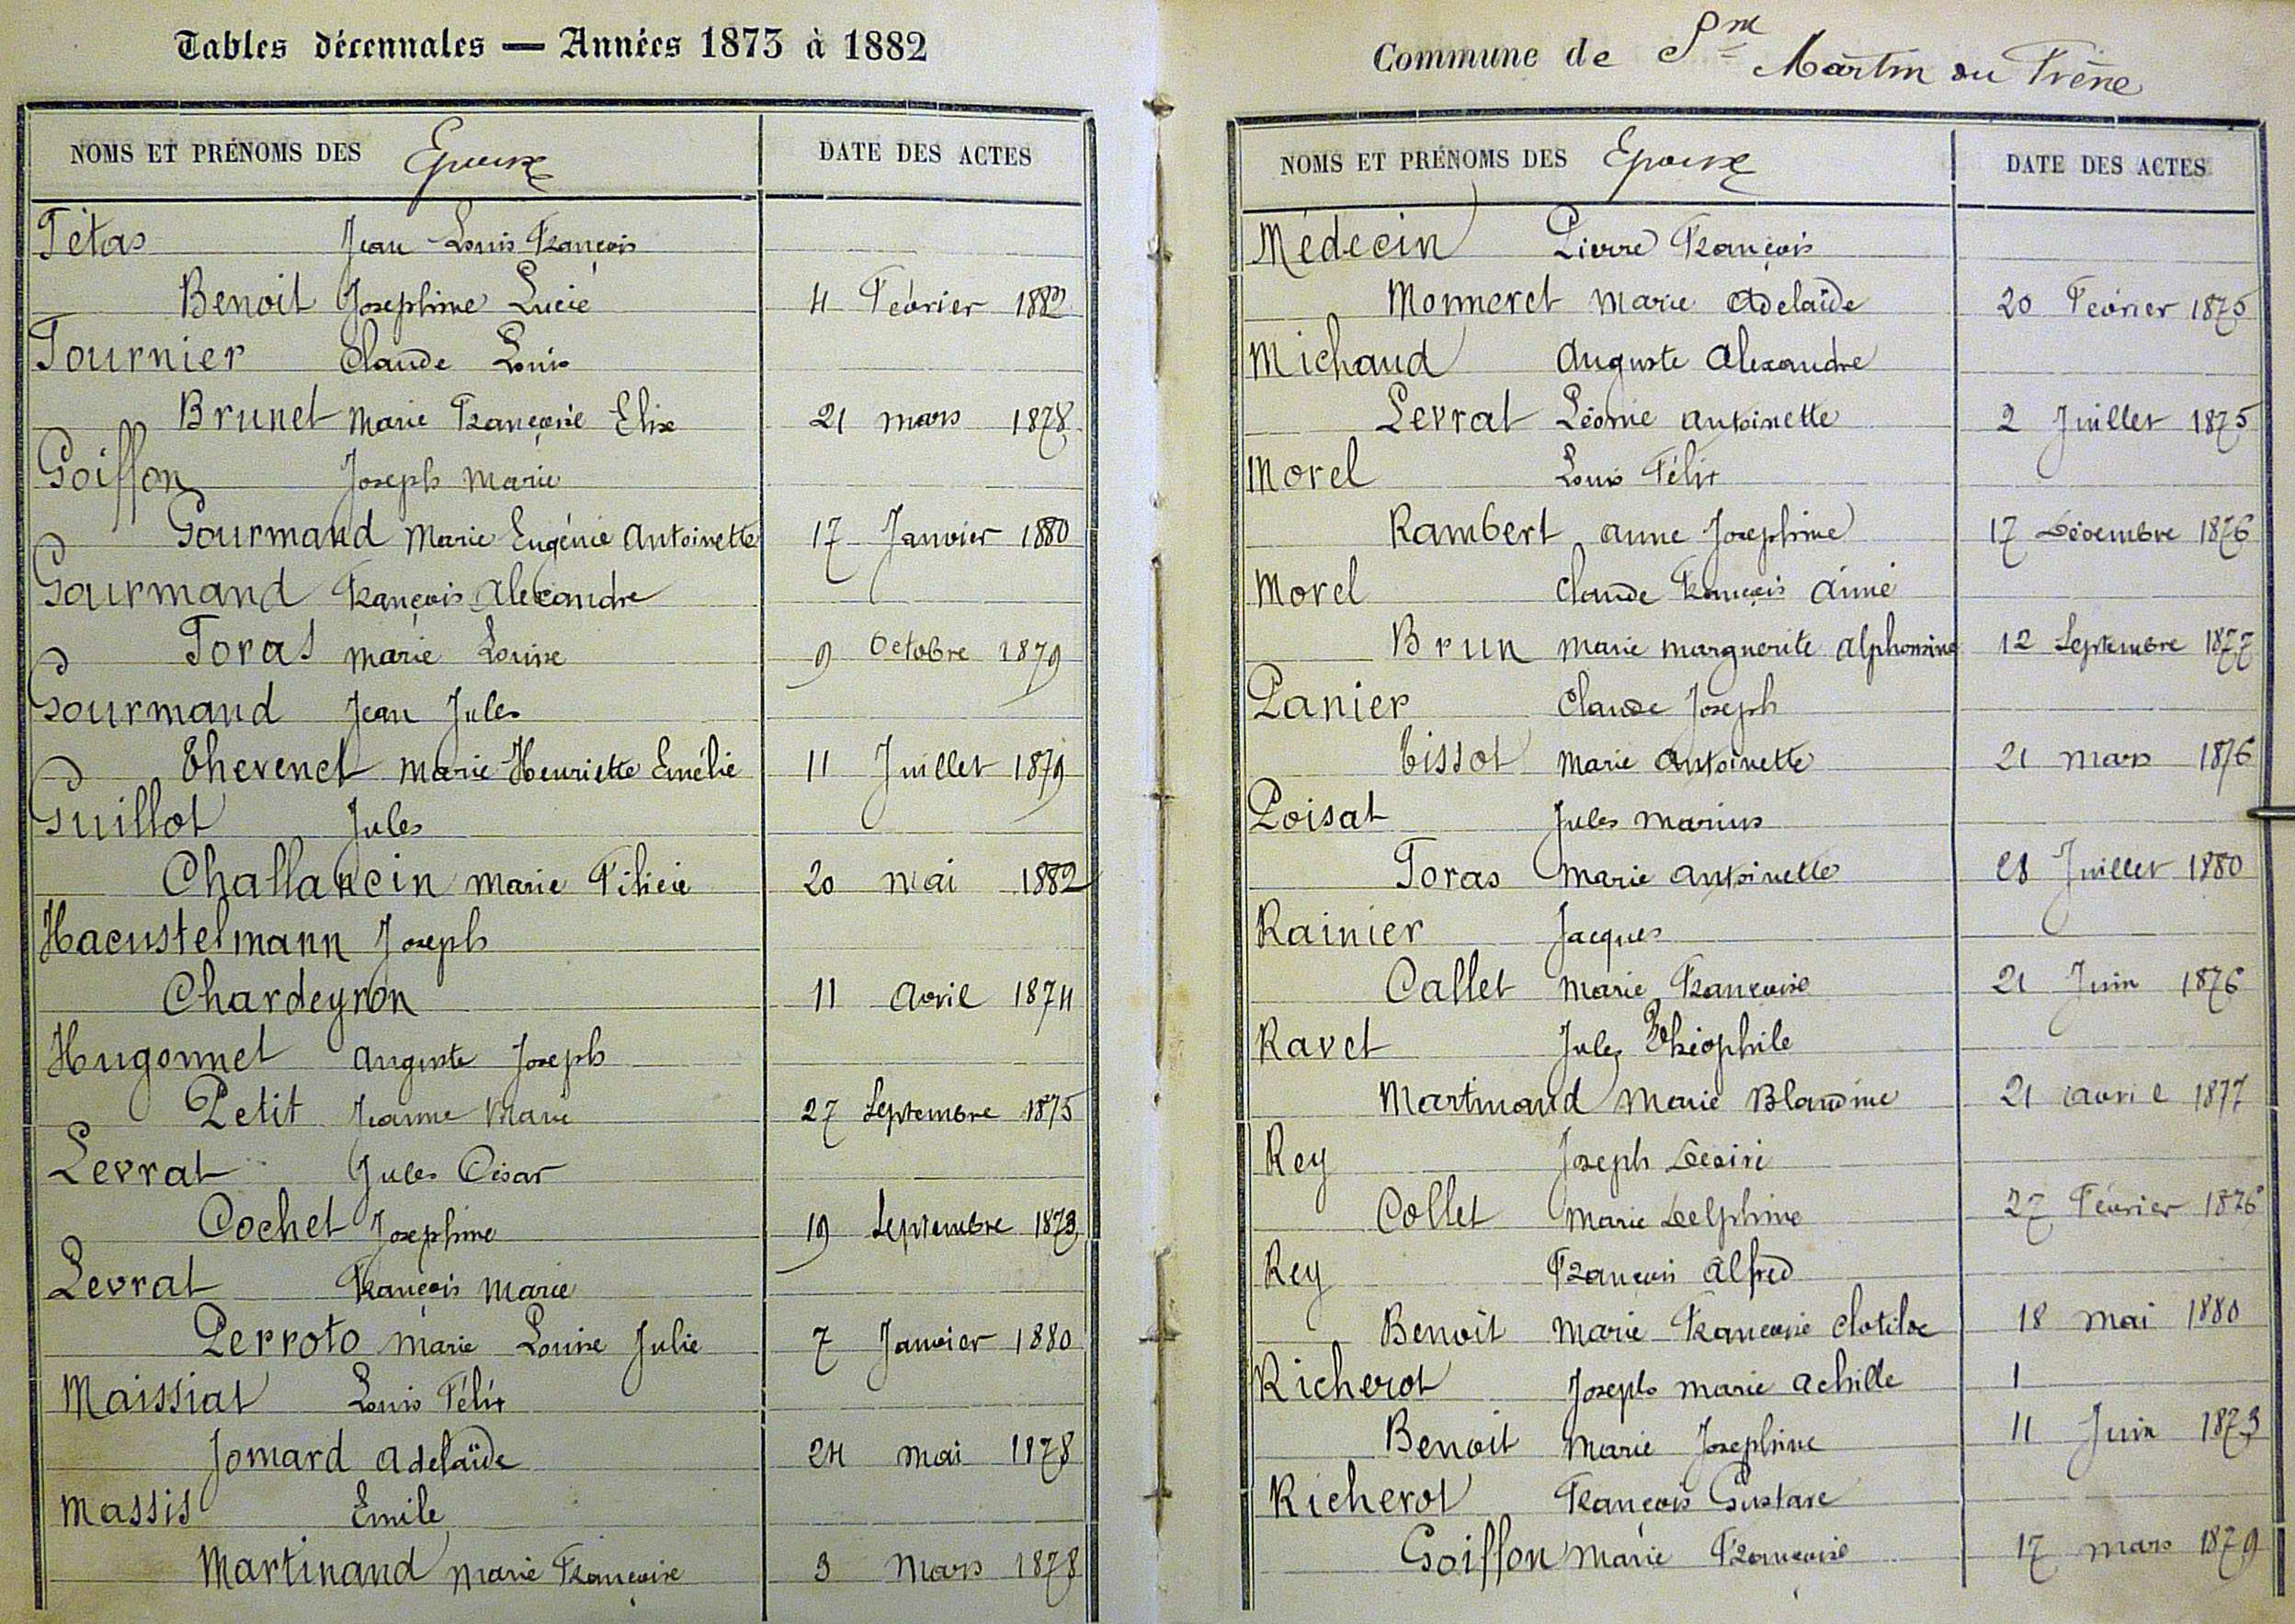 Tables décennales — Années 1873 à 1882
NOMS ET PRÉNOMS DES Epoux DATE DES ACTES
Tétas Jean Louis François
Benoit Josephine Lucie 4 Février 1882
Tournier Claude Louis
Brunet Marie Françoise Elise 21 mars 1878
Goiffon Joseph Marie
Gourmand Marie Eugénie Antoinette 17 Janvier 1880
Gourmand François Alexandre
Foras Marie Louise 9 Octobre 1879
Gourmand Jean Jules
Thevenet Marie Henriette Emélie 11 Juillet 1879
Guillot Jules
Challancin Marie Félicie 20 mai 1882
Haeustelmann Joseph
Chardeyron 11 Avril 1874
Hugonnet Auguste Joseph
Petit Jeanne Marie 27 Septembre 1875
Levrat Jules César
Cochet Josephine 19 Septembre 1873
Levrat François Marie
Perroto Marie Louise Julie 7 Janvier 1880
Maissiat Louis Félix
Jomard Adelaïde 24 mai 1878
Massis Emile
Martinand Marie Françoise 3 Mars 1878
Commune de Martin du Frêne
NOMS ET PRÉNOMS DES Epoux DATE DES ACTES
Médecin Pierre François
Monneret Marie Adelaïde 20 Février 1875
Michaud Auguste Alexandre
Levrat Léonie Antoinette 2 Juillet 1875
Morel Louis Félix
Rambert Anne Josephine 17 Décembre 1876
Morel Claude François Aimé
Brun Marie Marguerite Alphonsine 12 Septembre 1877
Panier Claude Joseph
Tissot Marie Antoinette 21 mars 1876
Poisat Jules Marius
Foras Marie Antoinette 28 Juillet 1880
Rainier Jacques
Callet Marie Françoise 21 Juin 1876
Ravet Jules Théophile
Martinand Marie Blandine 21 Avril 1877
Rey Joseph Désiré
Collet Marie Delphine 27 Février 1876
Rey François Alfred
Benoit Marie Françoise Clotilde 18 mai 1880
Richerot Joseph Marie Achille 1
Benoit Marie Josephine 11 Juin 1873
Richerot François Gustave
Goiffon Marie Françoise 17 mars 1879